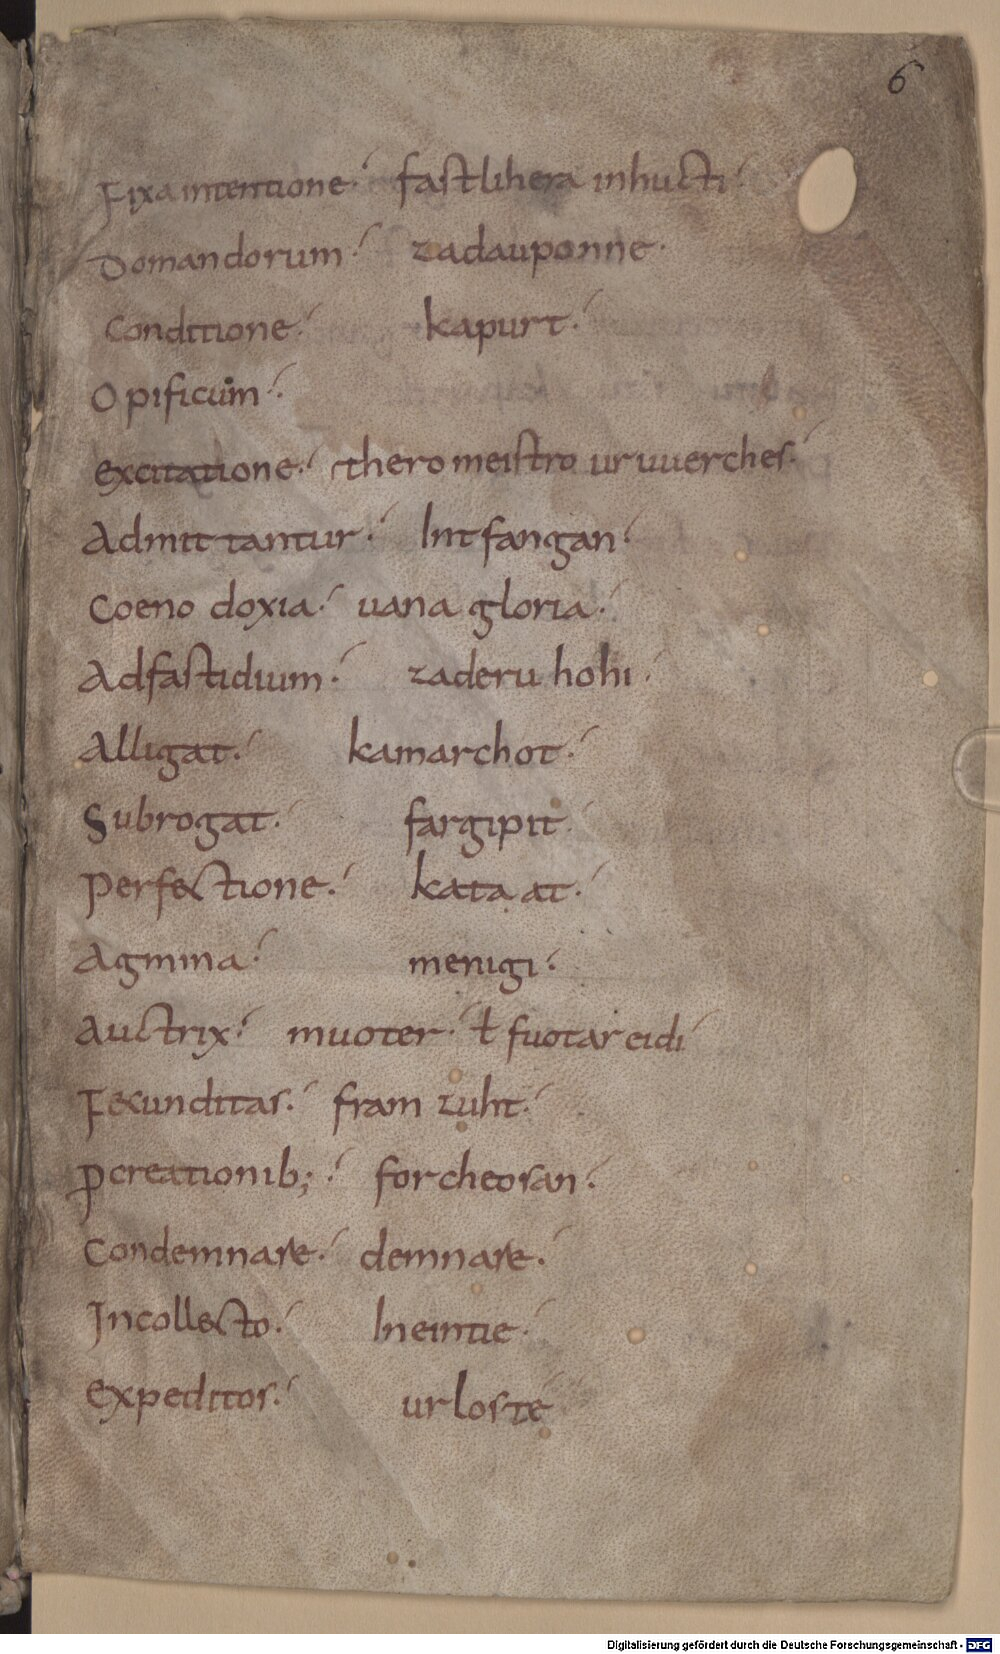 6
Fixa intentione. fastlihera inhucti.
Domandorum. zadauponne.
Conditione. kapurt.
Opificum.
excitatione. thero meistro uruuerches.
Admittantur. Intfangan.
Coeno doxia. uana gloria.
Adfastidium. zaderu hohi.
Alligat. kamarchot.
Subrogat. fargipit.
perfectione. kata at.
Agmina. menigi.
Auctrix. muoter. ł fuotar eidi
Fecunditas. fram zuht.
ꝓcreationib; . forcheosan.
Condemnare. demnare.
Incollecto. Ineintie.
expeditos. urloste
Digitalisierung gefördert durch die Deutsche Forschungsgemeinschaft - DFG